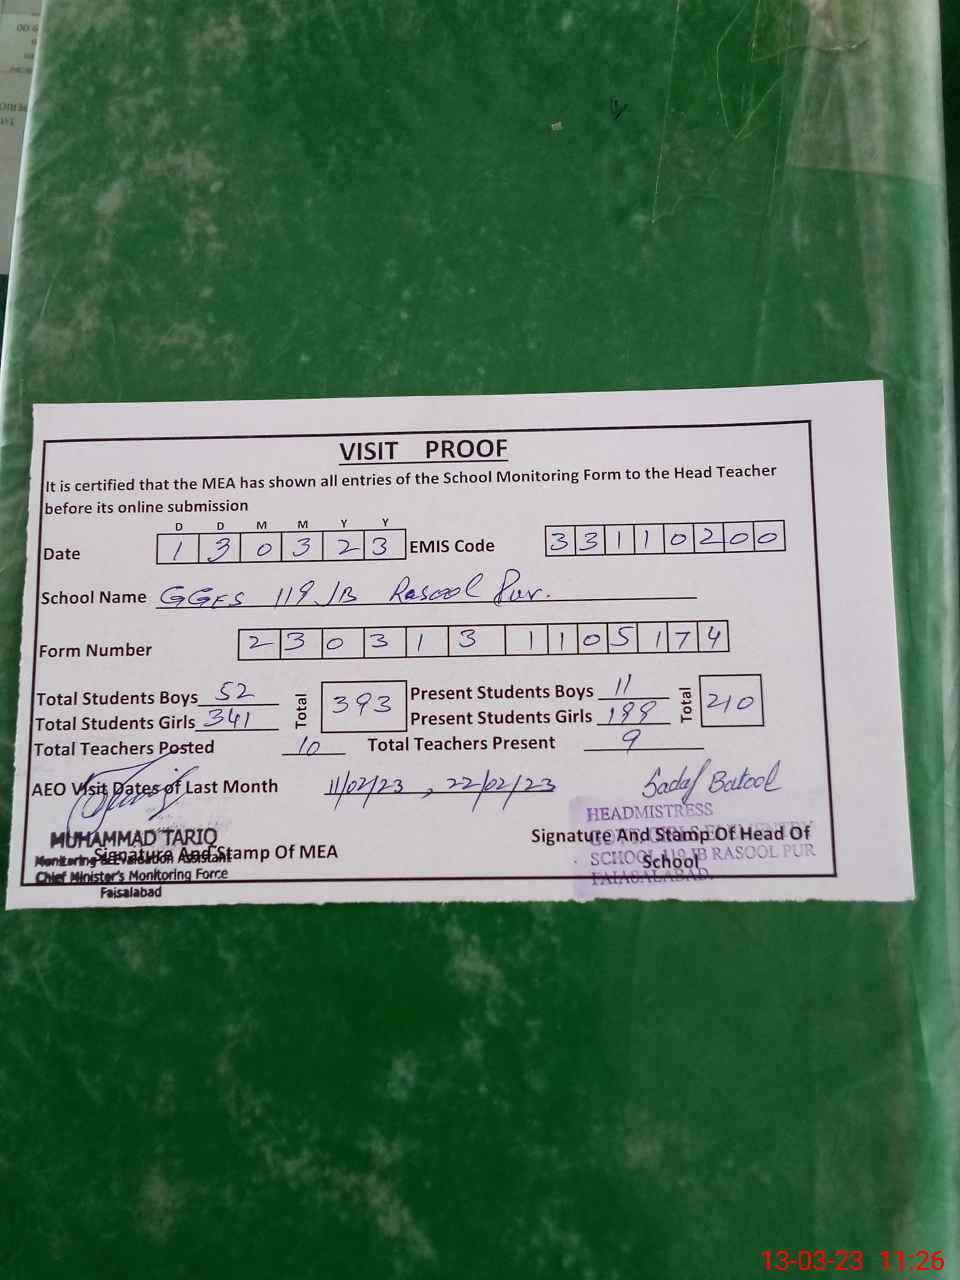 VISIT PROOF
It is certified that the MEA has shown all entries of the School Monitoring Form to the Head Teacher
before its online submission
D D M M Y Y
Date 1 3 0 3 2 3 EMIS Code 3 3 1 1 0 2 0 0
School Name GGES 119 JB Rasool Pur.
Form Number 2 3 0 3 1 3 1 1 0 5 1 7 4
Total Students Boys 52 Total 393 Present Students Boys 11 Total 210
Total Students Girls 341 Present Students Girls 199
Total Teachers Posted 10 Total Teachers Present 9
AEO Visit Dates of Last Month 11/02/23, 22/02/23 Sadaf Batool
HEADMISTRESS
MUHAMMAD TARIQ
Signature And Stamp Of Head Of
School
Signature And Stamp Of MEA
SCHOOL 119 JB RASOOL PUR
FAISALABAD.
Monitoring & Evaluation Assistant
Chief Minister's Monitoring Force
Faisalabad
13-03-23 11:26